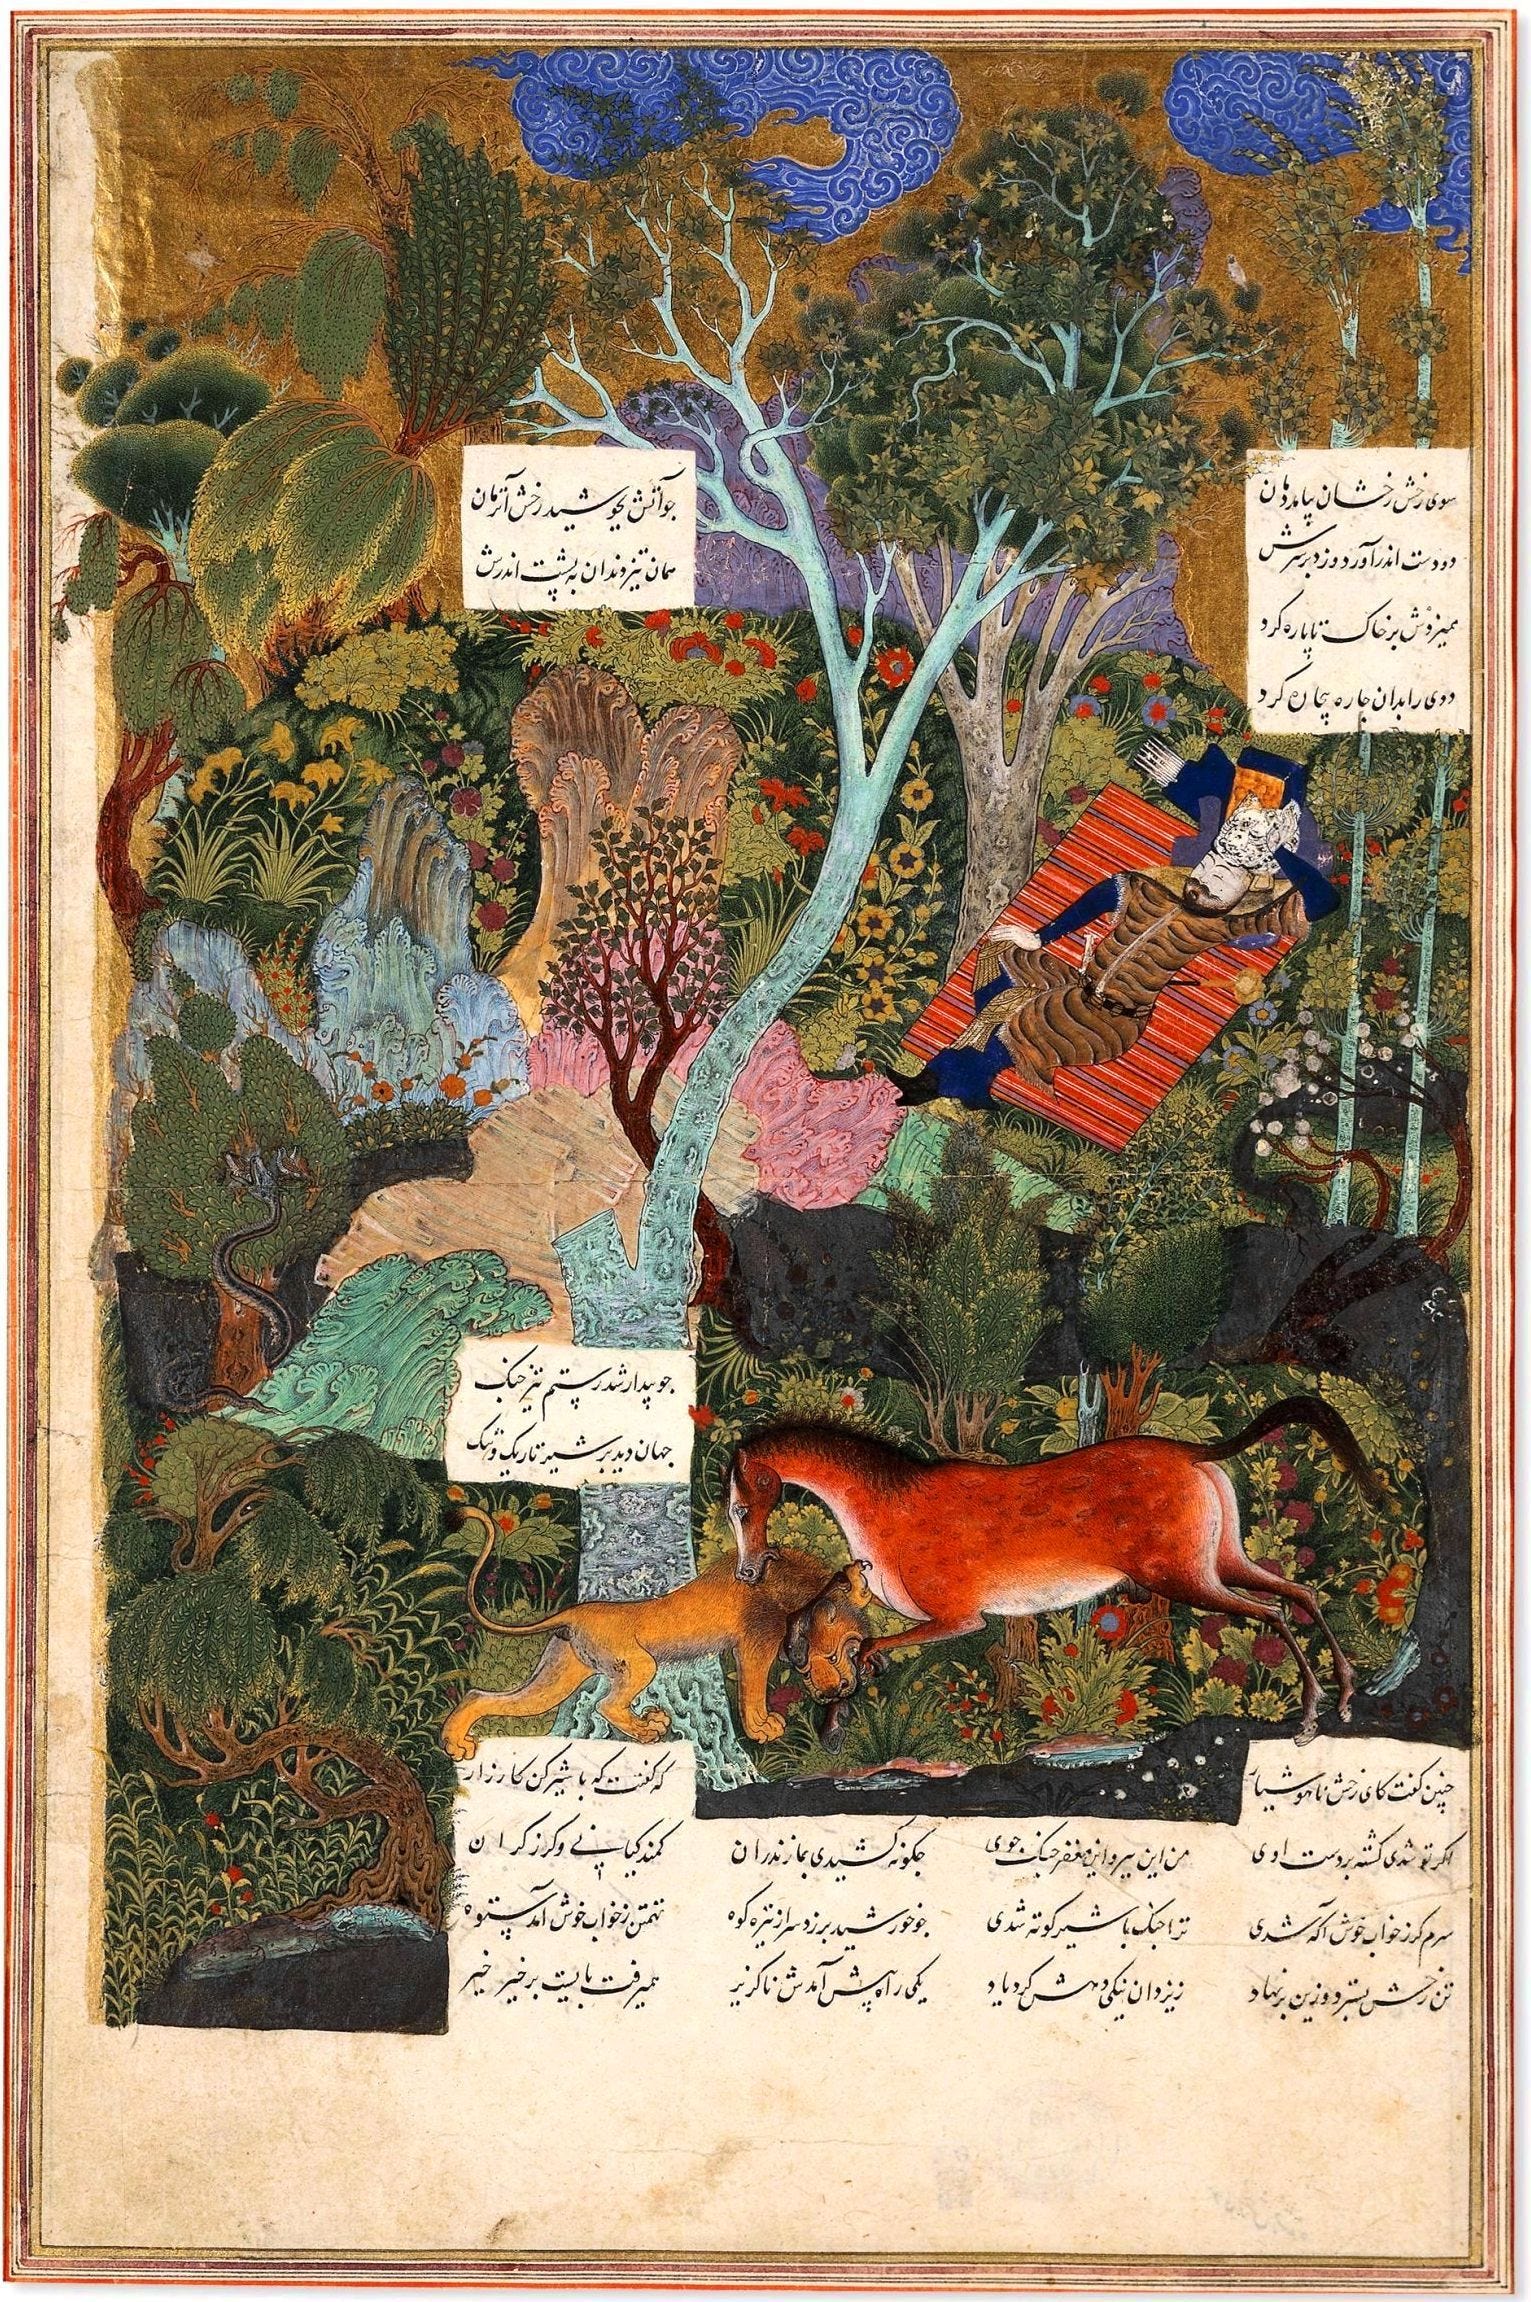 سوی رخش رخشان بیامد دمان چو آتش بجوشید رخش آنزمان
دو دست اندر آورد و زد بر سرش همان تیز دندان به پشت اندرش
همیزدش بر خاک تا پاره کرد
ددی را بدان چاره بیچاره کرد
چو بیدار شد رستم تیز جنک
جهان دید بر شیر تاریک و تنک
چنین گفت کای رخش ناهوشیار که گفتت که با شیر کن کارزار
اگر تو شدی کشته بر دست اوی من این ببر و این مغفر جنک جوی چگونه کشیدی بمازندران کمند کیانی و گرز گران
سرم گر ز خواب خوش آگه شدی ترا جنک با شیر کوته شدی چو خورشید برزد سر از تیره کوه تهمتن ز خواب خوش آمد ستوه
تن رخش بسترد و زین برنهاد ز یزدان نیکی دهش کرد یاد یکی راه پیش آمدش ناگزیر همیرفت بایست بر خیر خیر